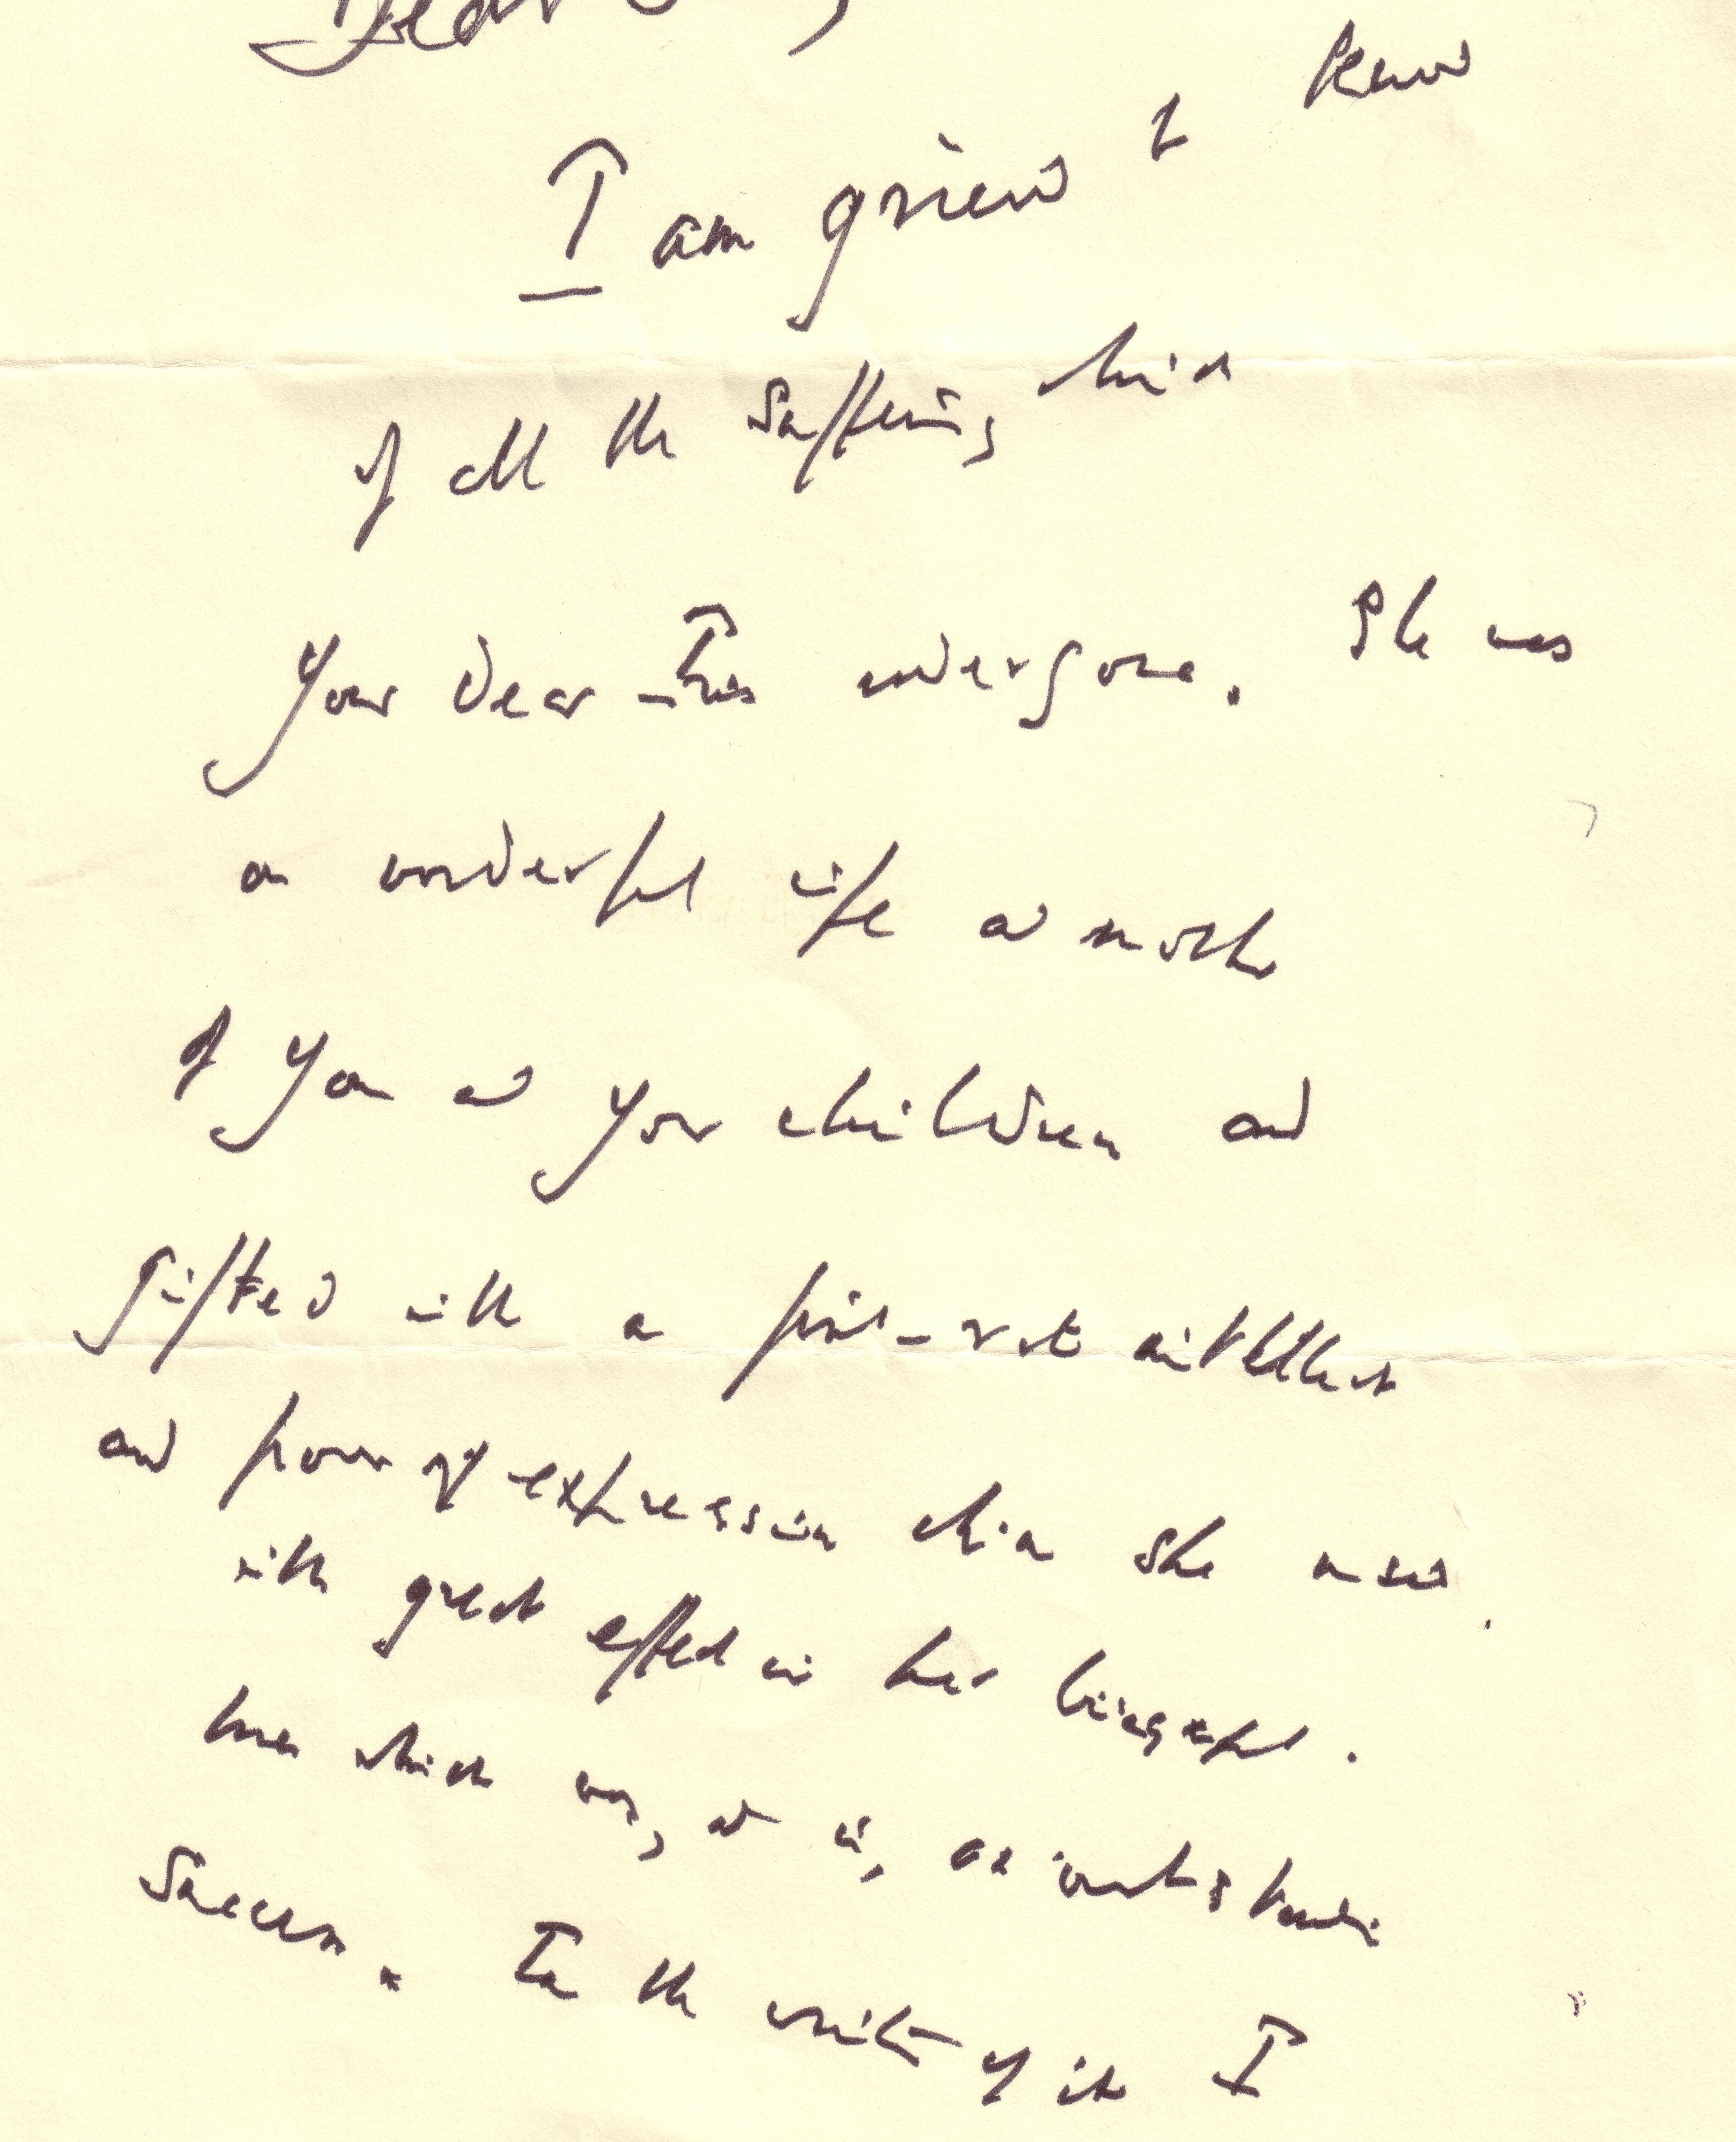 Dear
I am grieved to hear
of all the suffering which
your dear Iris underwent. She was
a wonderful wife and mother
of you and your children and
gifted with a first-rate intellect
and power of expression which she used
with great effect in her biograph.
which was, and is, an outstanding
success. In the writing of it I